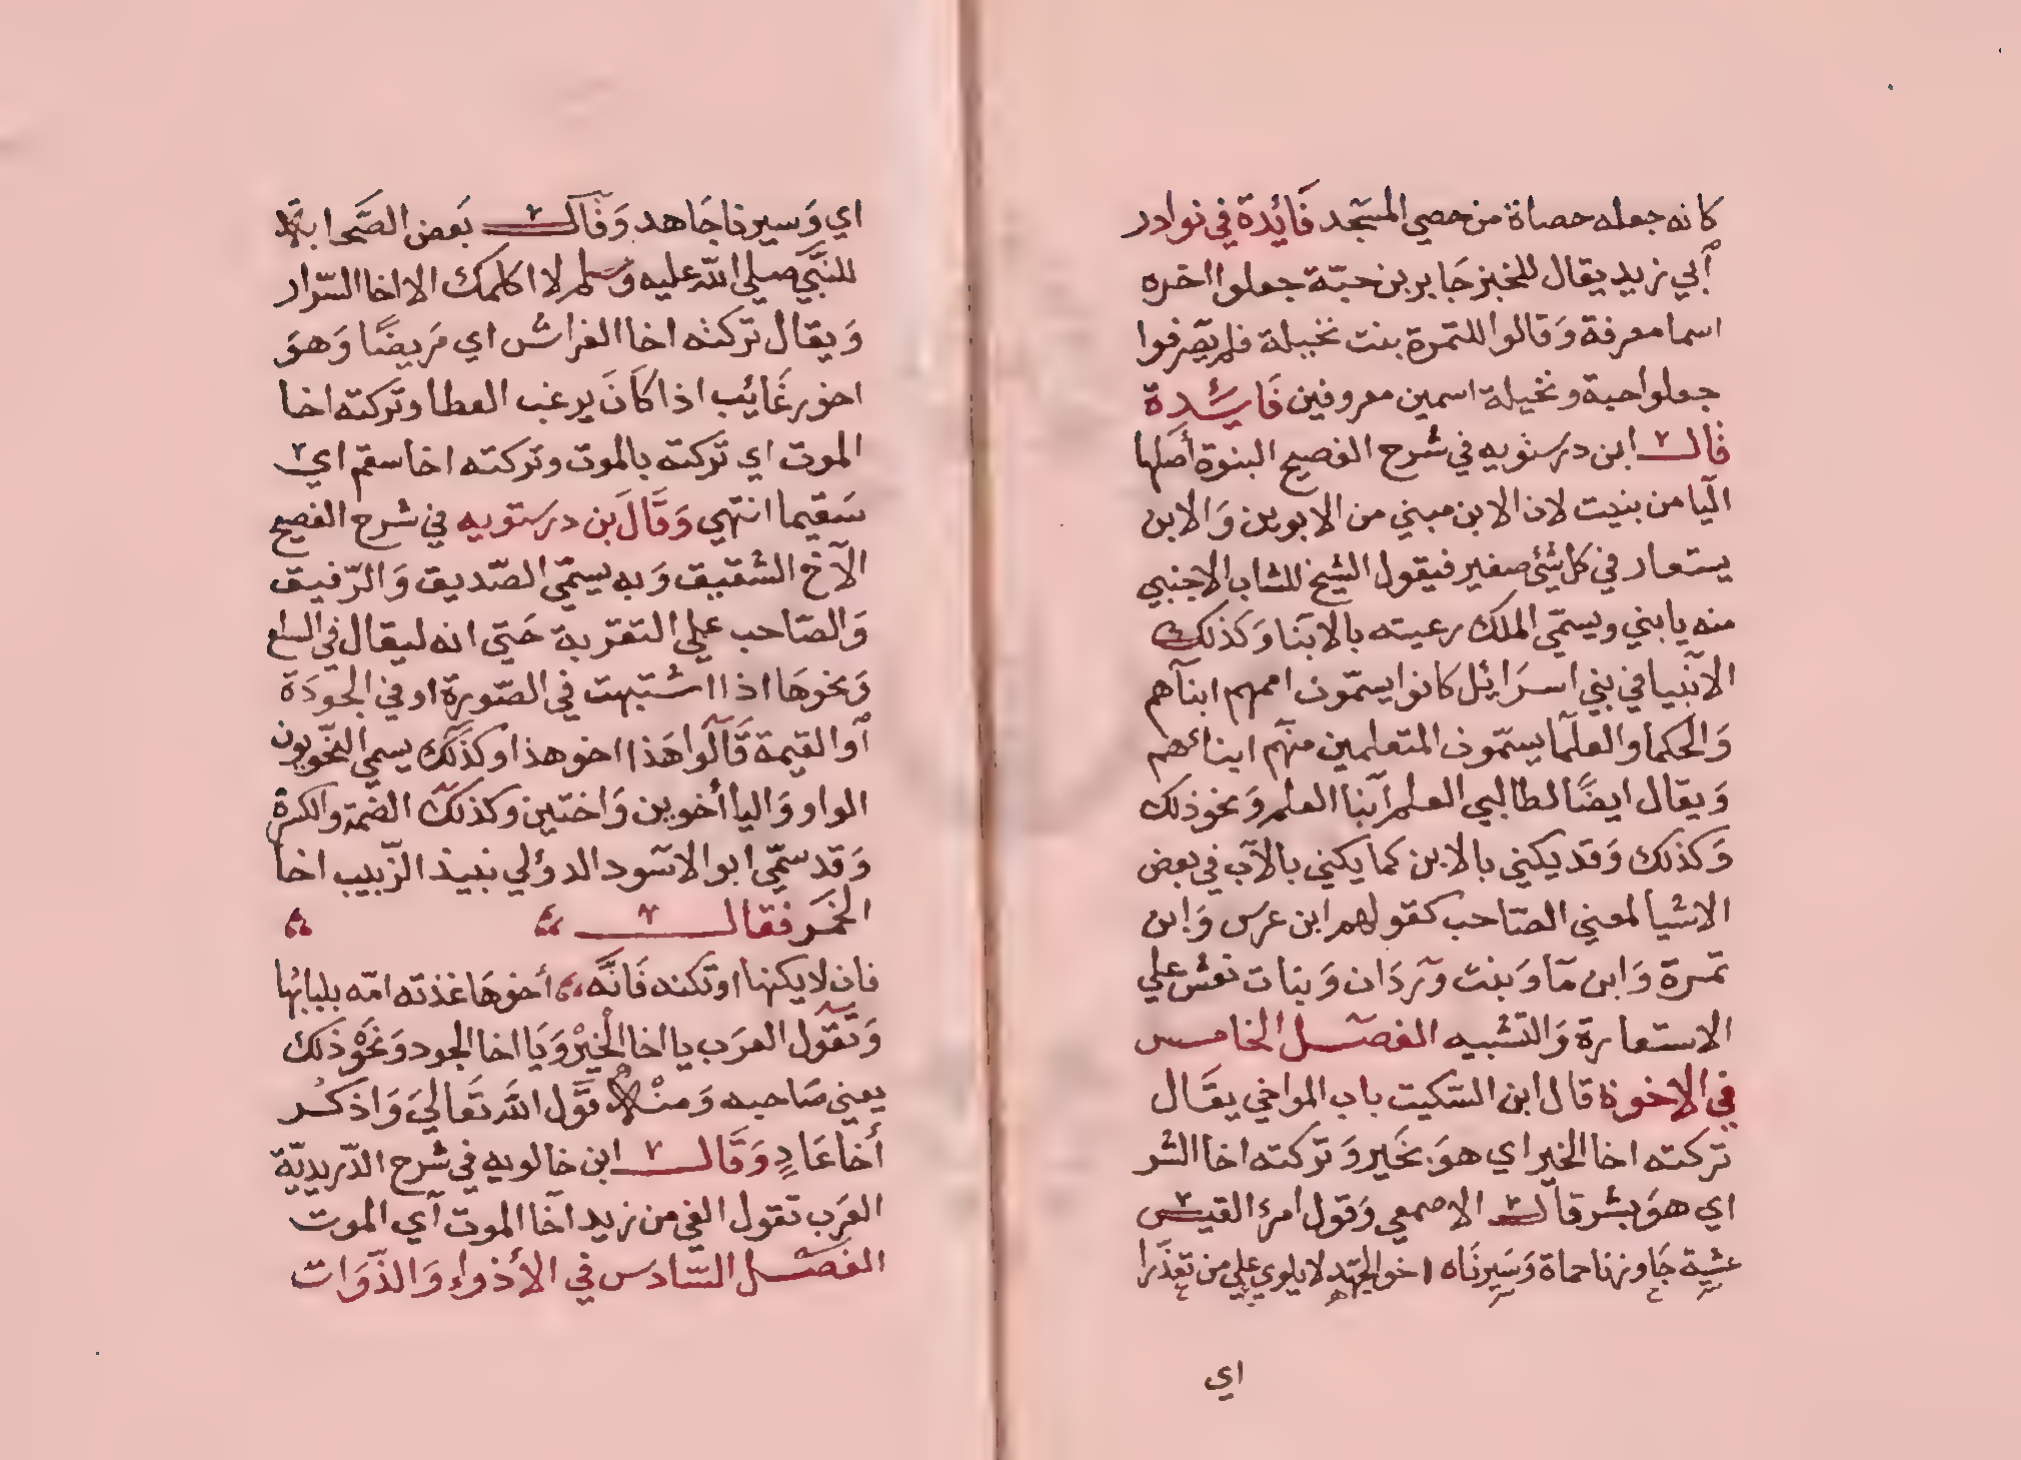 كانه جعله حصاة من حصي المسجد فائدة في نوادر
أبي زيد يقال للخبز جابر بن حبة جعلوا اخره
اسما معرفة وقالوا للتمرة بنت نخيلة فلم يصرفوا
جعلوا حبة و نخيلة اسمين معروفين فايئدة
قال ابن درستويه في شرح الفصيح البنوة أصلها
اليا من بنيت لان الابن مبني من الابوين والابن
يستعار في كل شئ صغير فيقول الشيخ للشاب الاجنبي
منه يا بني ويسمي الملك رعيته بالابنا وكذلك
الانبيا في بني اسرائل كانوا يسمون اممهم ابناهم
والحكما والعلما يسمون المتعلمين منهم ابنائهم
ويقال ايضا لطالبي العلم ابنا العلم ونحو ذلك
وكذلك وقد يكني بالابن كما يكني بالاب في بعض
الاشيا لمعني الصاحب كقولهم ابن عرس وابن
تمرة وابن ما وبنت وردان وبنات نعش علي
الاستعارة والتشبيه الفصل الخامس
في الاخوة قال ابن السكيت باب المواخي يقال
تركته اخا الخير اي هو بخير وتركته اخا الشر
اي هو بشر قال الاصمعي وقول امرئ القيس
عشية جاوزنا حماة وسيرناه اخو الجهد لا يلوي علي من تعذرا
اي
اي وسيرنا جاهد وقال بعض الصحابة
للنبي صلي الله عليه وسلم لا اكلمك الا اخا السرار
ويقال تركته اخا الفراش اي مريضا وهو
اخو رغائب اذا كان يرغب العطا وتركته اخا
الموت اي تركته بالموت وتركته اخا سقم اي
سقيما انتهي وقال بن درستويه في شرح الفصيح
الاخ الشقيق وبه يسمي الصديق والرفيق
والصاحب علي التقربة حتي انه ليقال في السلع
ونحوها اذا اشتبهت في الصورة او في الجودة
او القيمة قالوا هذا اخو هذا وكذلك يسمي النحويون
الواو واليا أخوين واختين وكذلك الضمة والكسرة
وقد سمي ابو الاسود الدؤلي نبيذ الزبيب اخا
الخمر فقال
فان لا يكنها او تكنه فانه أخوها غذته امه بلبانها
وتقول العرب يا اخا الخير ويا اخا الجود ونحو ذلك
يعني صاحبه ومنه قول الله تعالي واذكر
أخا عاد وقال ابن خالويه في شرح الدريدية
العرب تقول الفي من زيد اخا الموت اي الموت
الفصل السادس في الأذواء والذوات